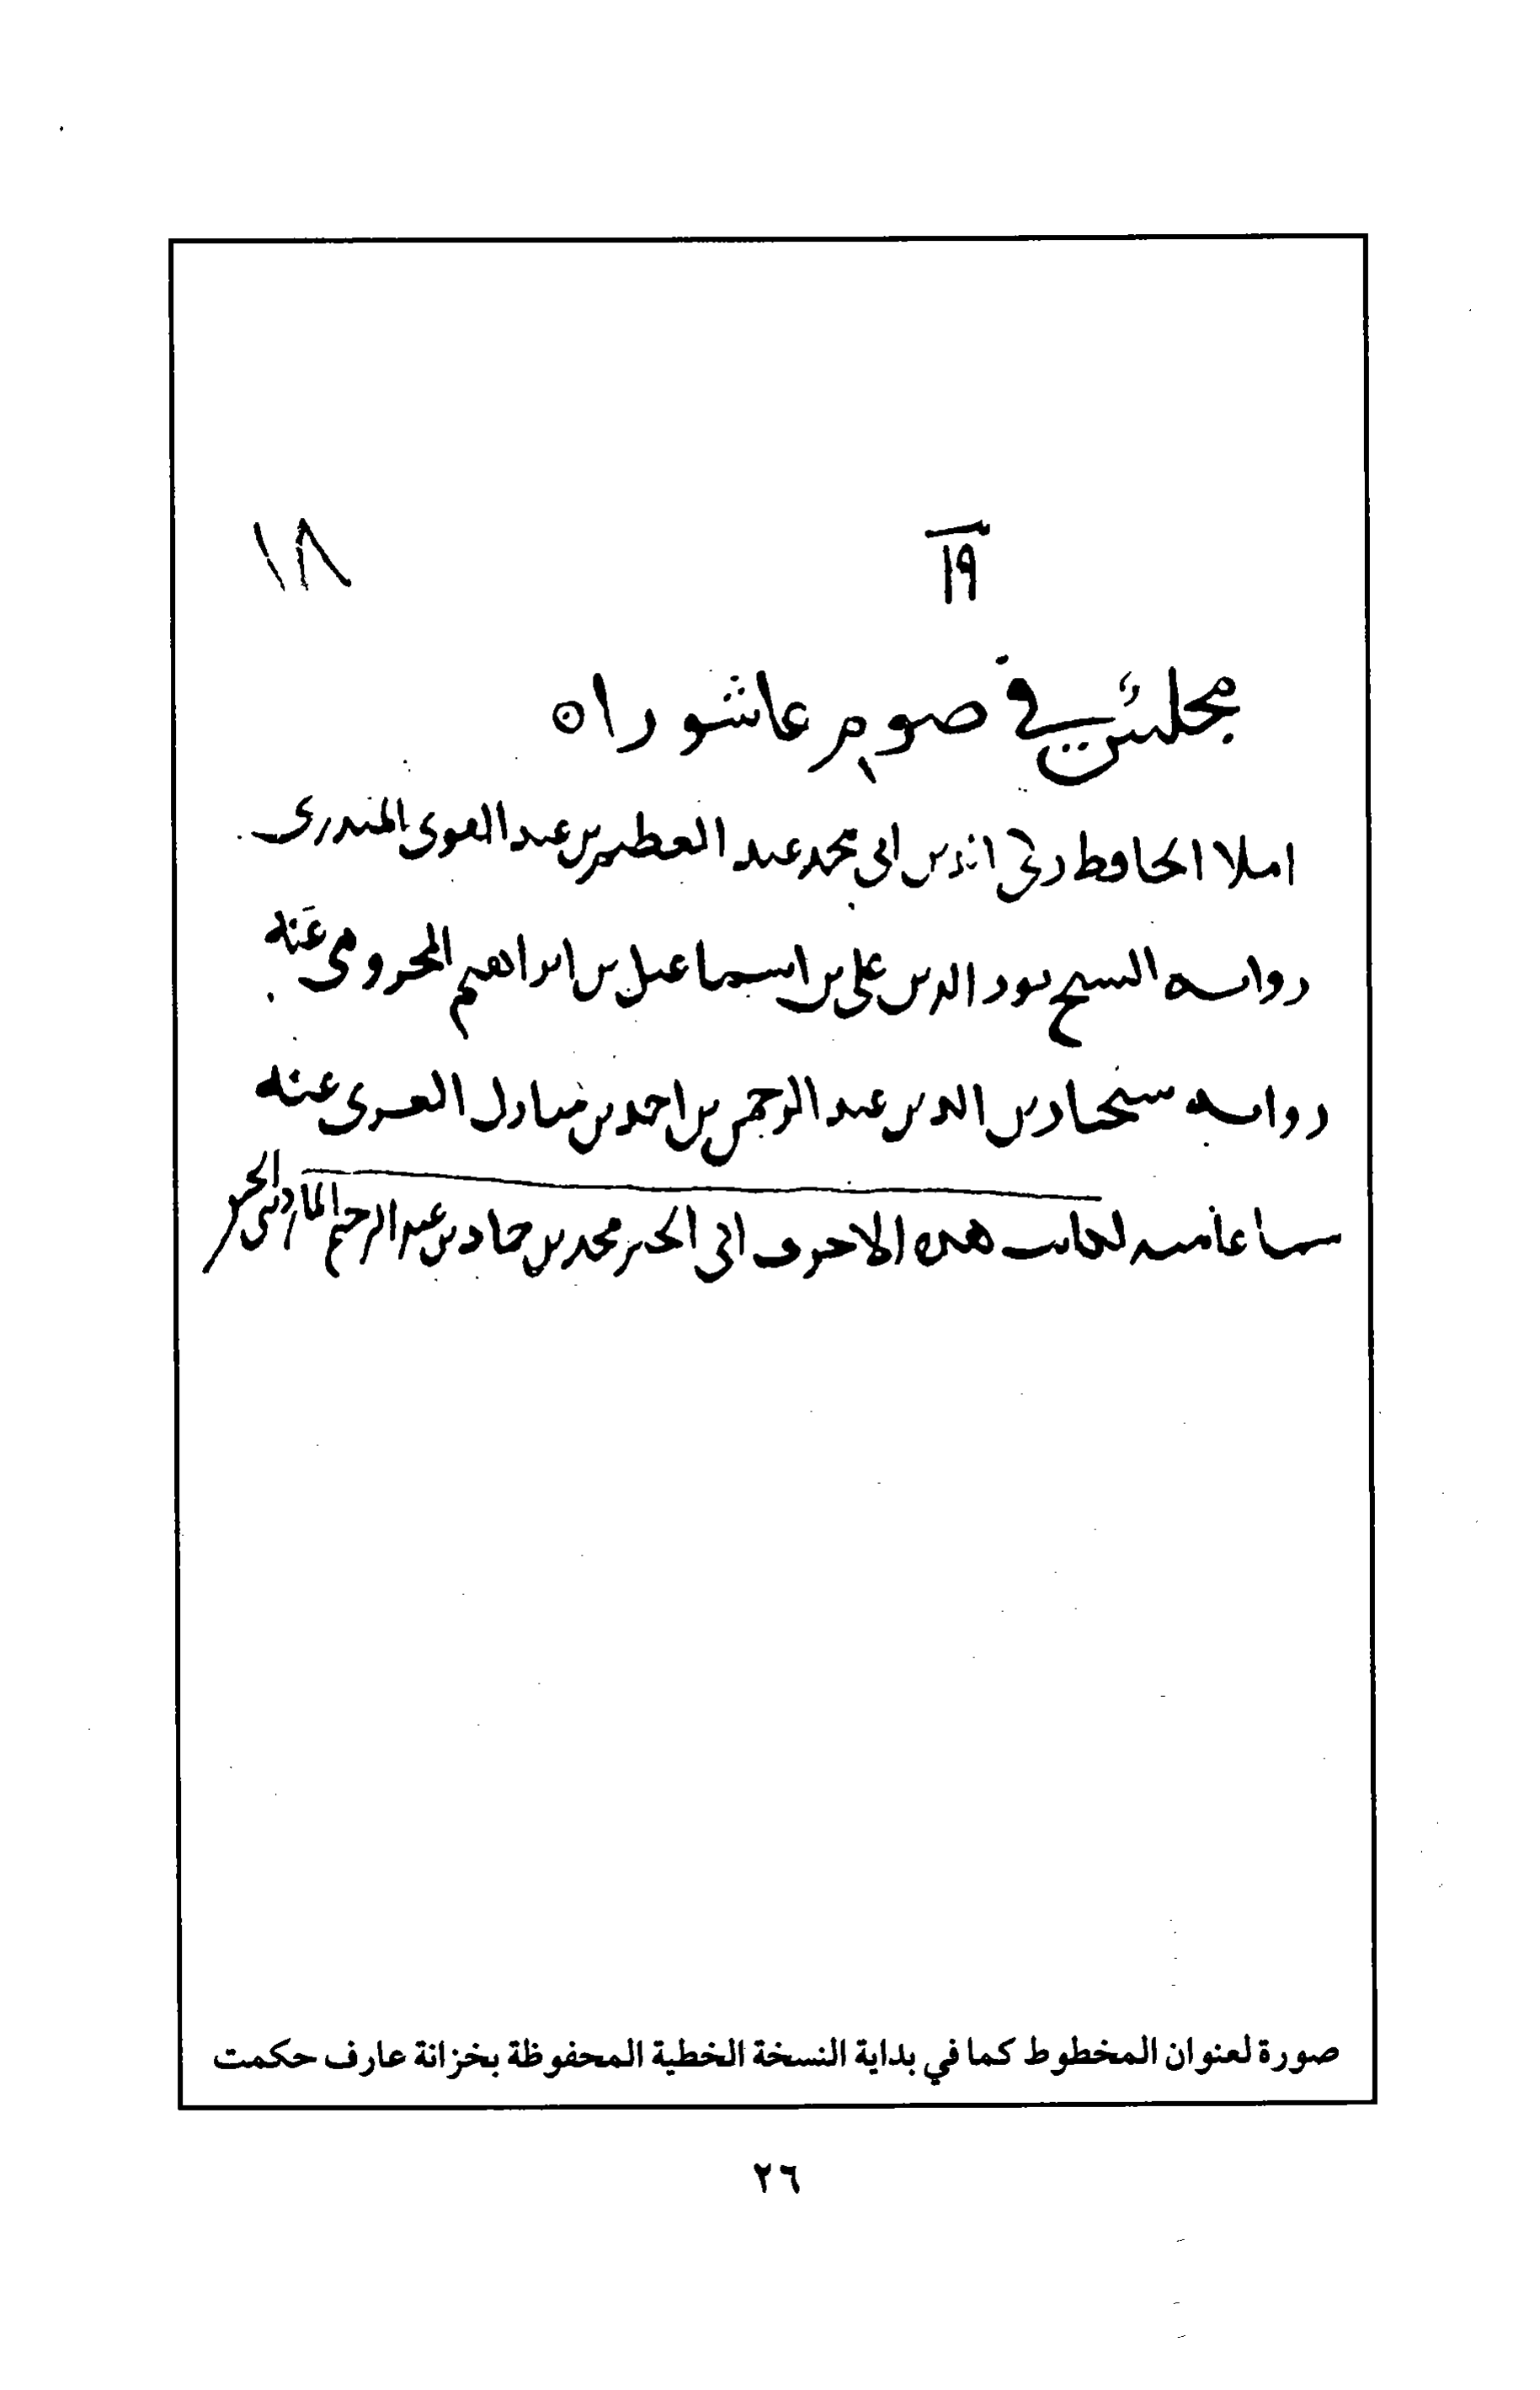 ١٩ ١٨
مجلس في صوم عاشورا ه
املا الحافظ زكي الدين ابي محمد عبد العظيم بن عبد القوي المنذري
رواية الشيخ نور الدين علي بن اسماعيل بن ابراهيم المخزومي عنه
رواية شيخنا زين الدين عبد الرحمن بن احمد بن مبارك الغزي عنه
سماعا منه لكاتب هذه الاحرف ابي الخير محمد بن عبد الرحيم
صورة لعنوان المخطوط كما في بداية النسخة الخطية المحفوظة بخزانة عارف حكمت
٢٦